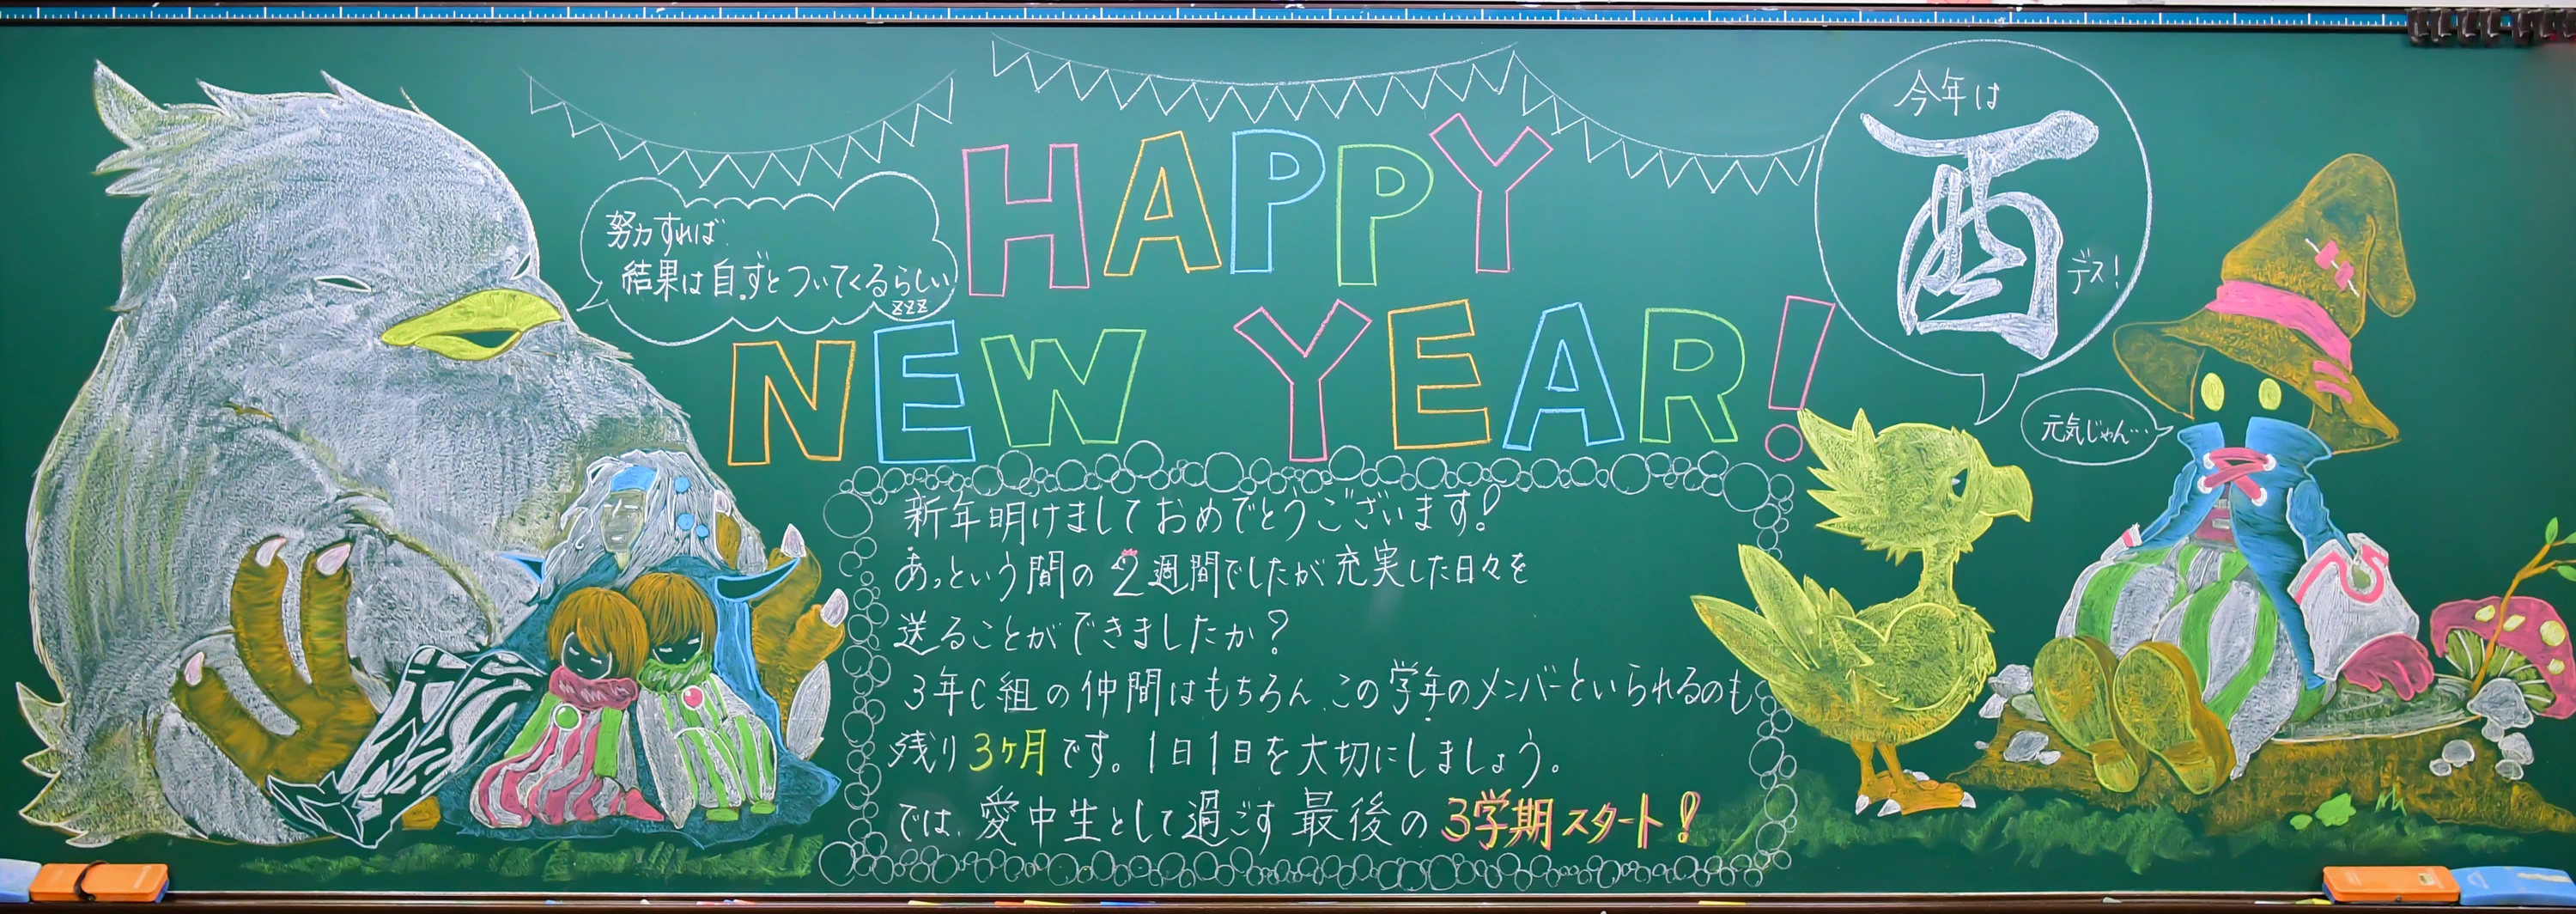 努力すれば
結果は自ずとついてくるらしい
zzz
HAPPY
NEW YEAR!
今年は
酉
デス!
元気じゃん…
新年明けましておめでとうございます!
あっという間の2週間でしたが充実した日々を
送ることができましたか?
3年C組の仲間はもちろん、この学年のメンバーといられるのも
残り3ヶ月です。1日1日を大切にしましょう。
では、愛中生として過ごす最後の3学期スタート!